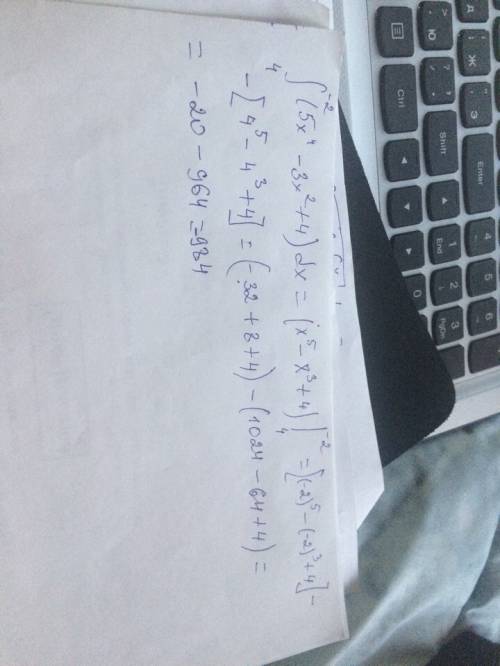 ∫₄⁻² (5x⁴ - 3x² + 4) dx = (x⁵ - x³ + 4) |₄⁻² = [(-2)⁵ - (-2)³ + 4] -
- [4⁵ - 4³ + 4] = (-32 + 8 + 4) - (1024 - 64 + 4) =
= - 20 - 964 = 984
Ctrl
Shift
Enter
End
PgDn